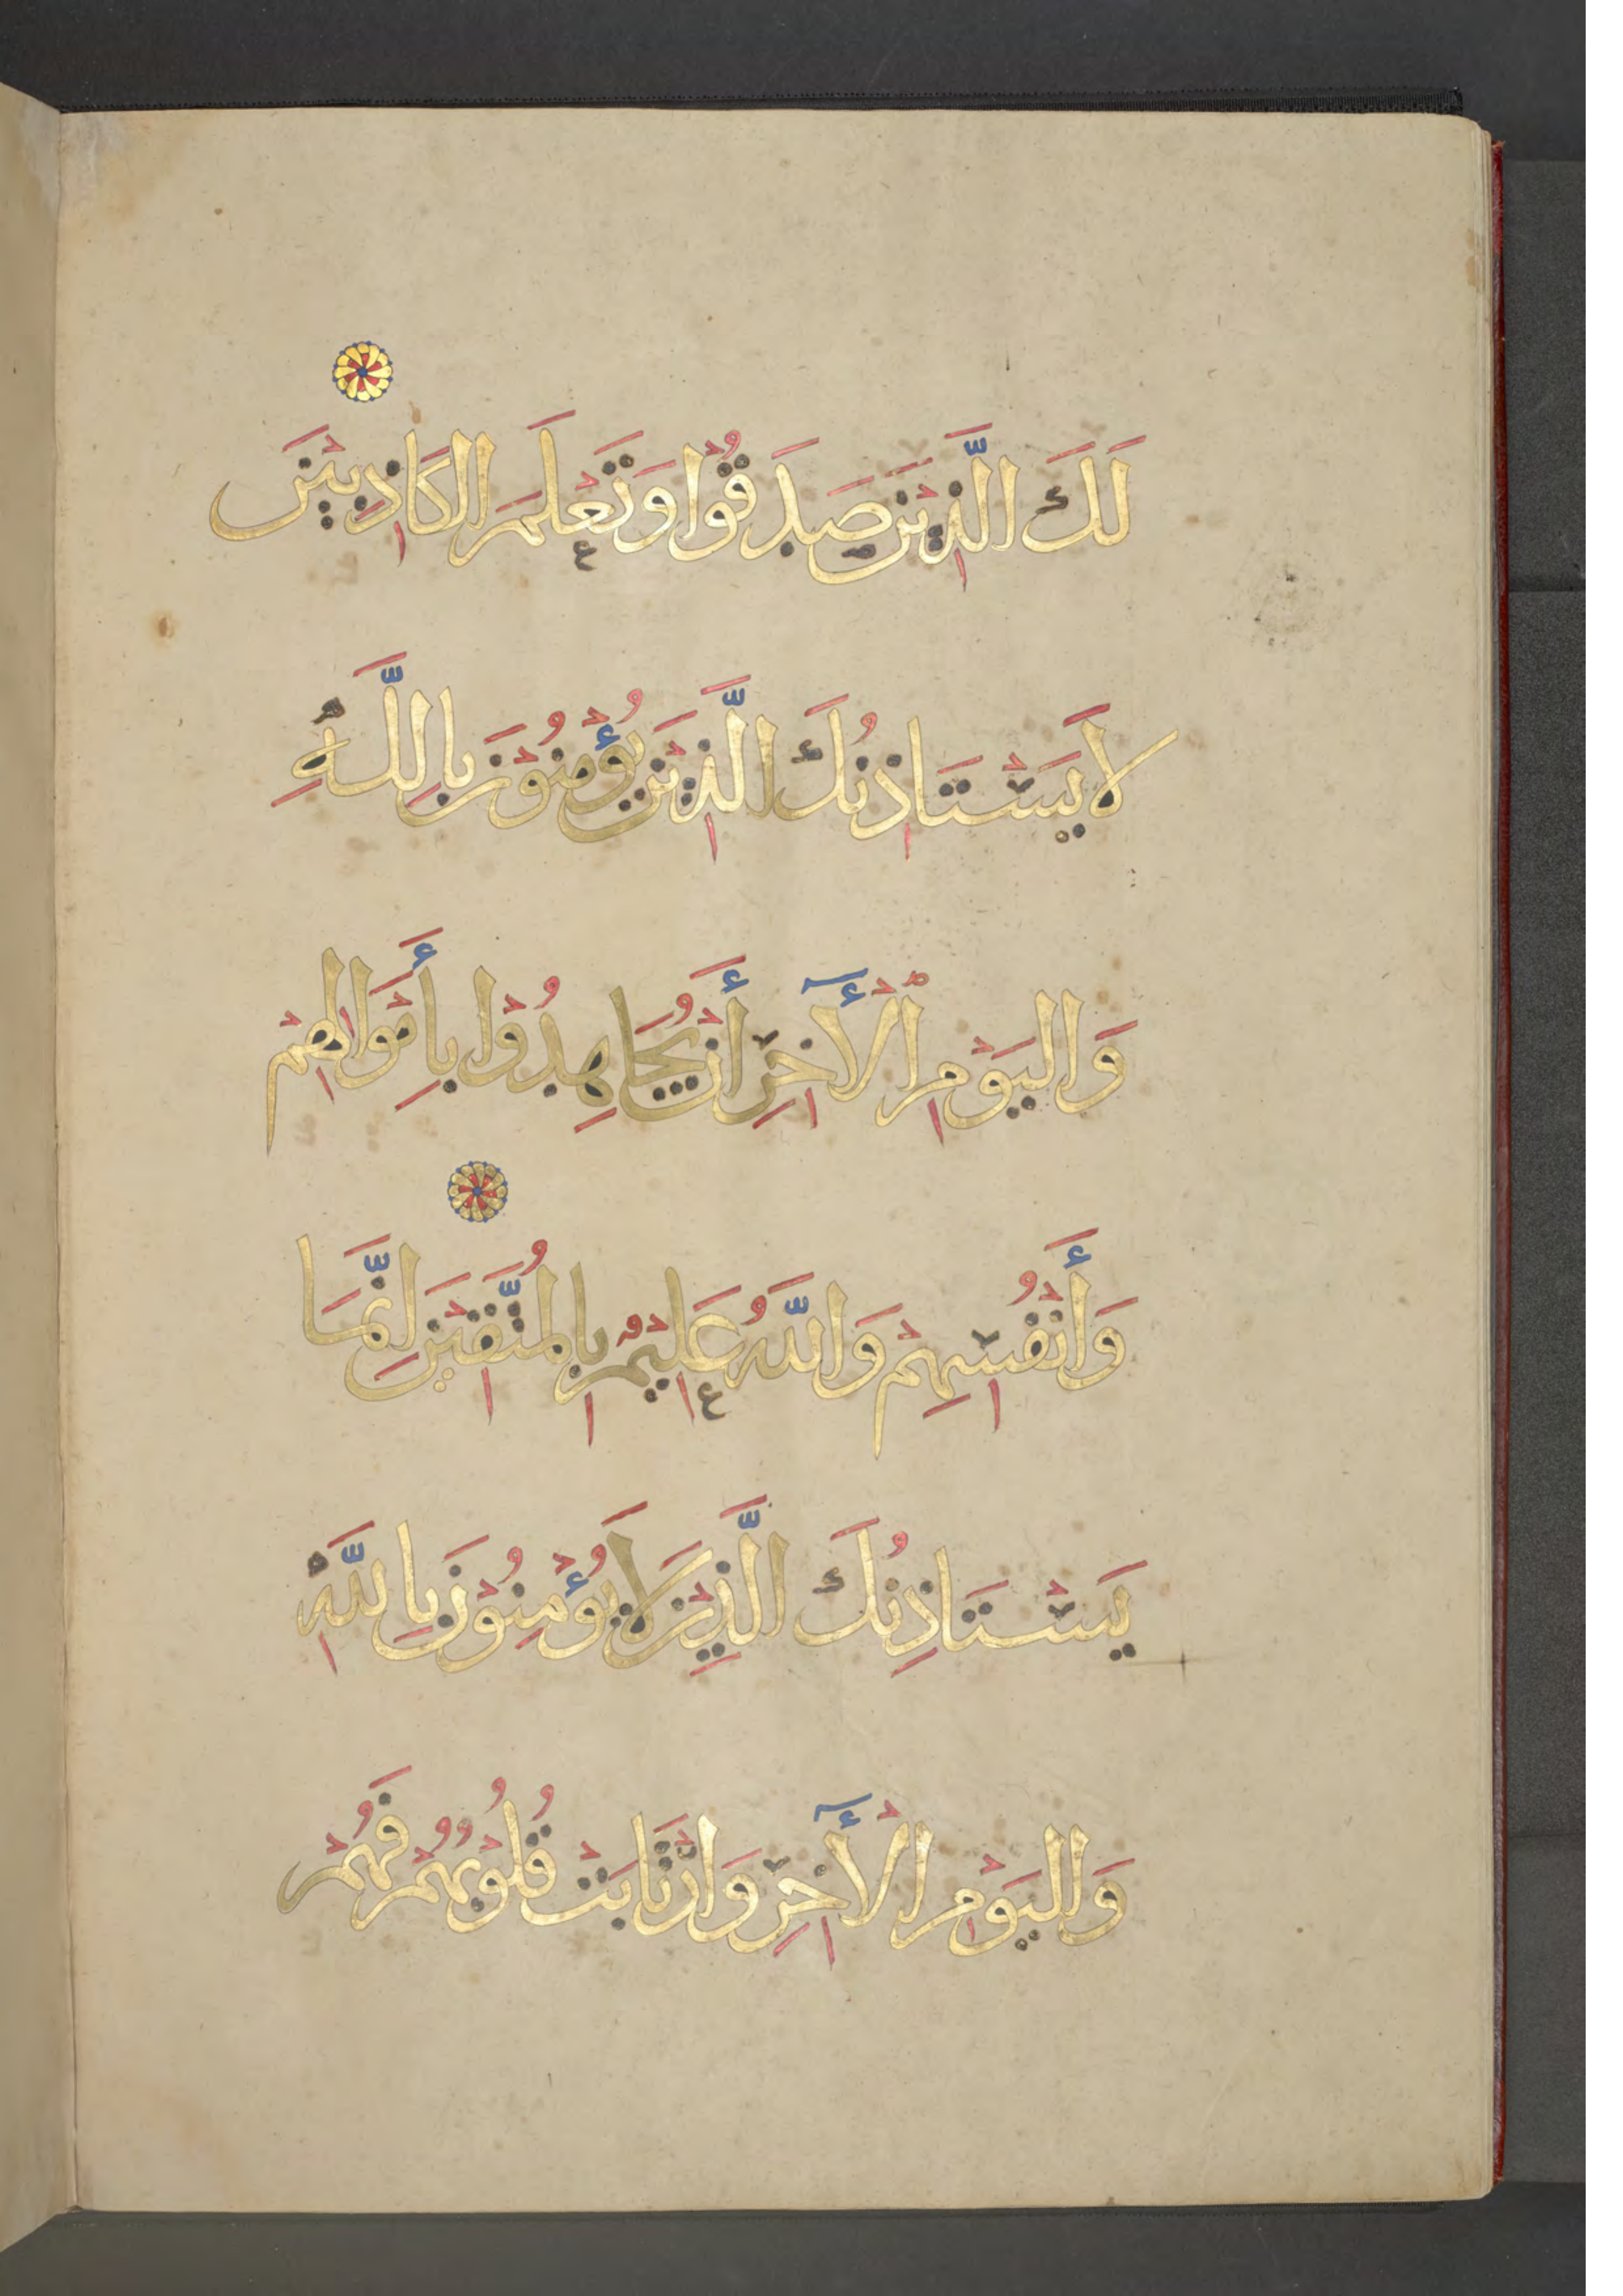 لَكَ الَّذِينَ صَدَقُوا وَتَعْلَمَ الكَاذِبِينَ
لَا يَسْتَاذِنُكَ الَّذِينَ يُؤْمِنُوْنَ بِاللَّهِ
وَاليَوْمِ الْأَٓخِرِ أَنْ يُجَاهِدُوْا بِأَمْوَالِهِمْ
وَأَنْفُسِهِمْ وَاللَّهُ عَلِيْمٌ بِالمُتَّقِيْنَ اِنَّمَا
يَسْتَاذِنُكَ الَّذِيْنَ لَا يُؤْمِنُوْنَ بِاللَّهِ
وَاليَوْمِ الْأَٓخِرِ وَارْتَابَتْ قُلُوْبُهُمْ فَهُمْ